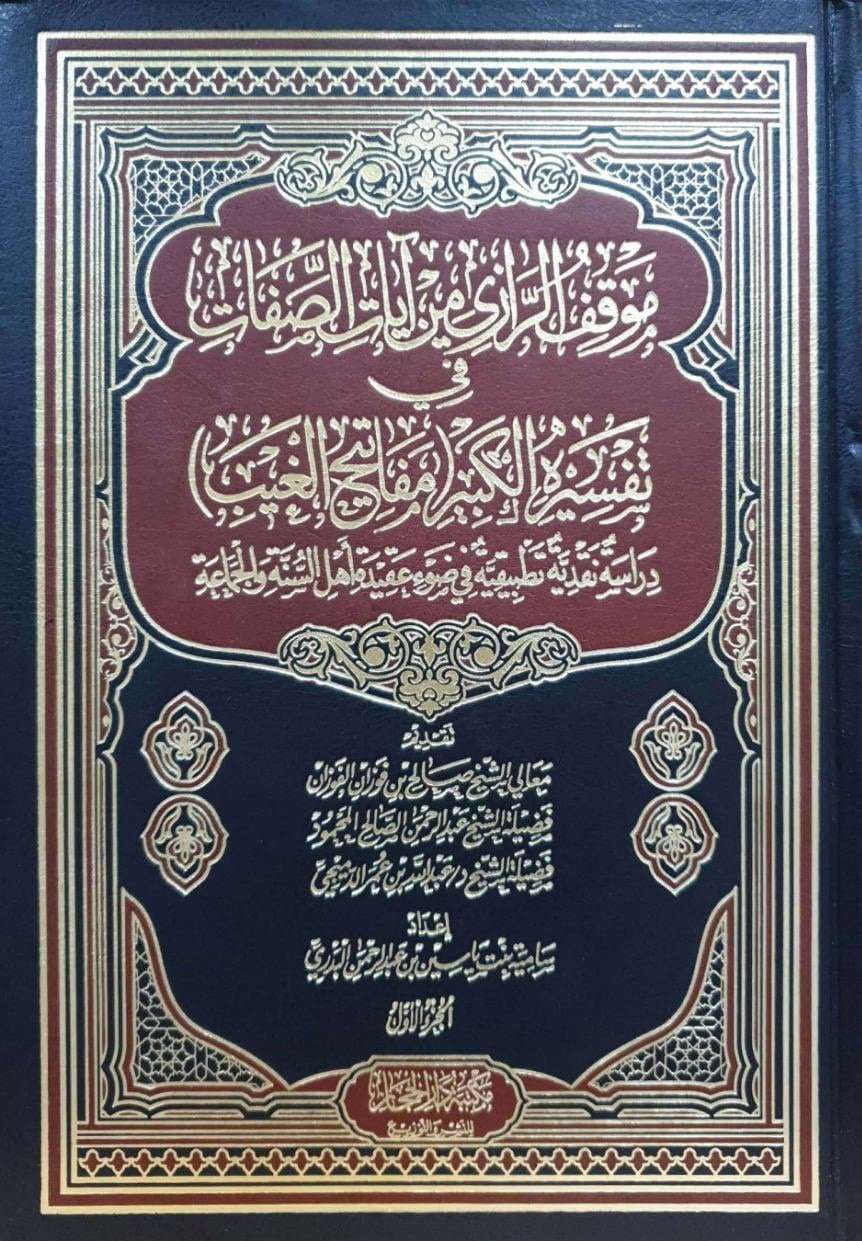 مَوقِفُ الرَّازِي مِنْ آيَاتِ الصِّفَاتِ
فِي
تَفْسِيرِهِ الكَبِيرِ (مَفَاتِيحِ الغَيْبِ)
دِرَاسَةٌ نَقْدِيَّةٌ تَطْبِيقِيَّةٌ فِي ضَوْءِ عَقِيدَةِ أَهْلِ السُّنَّةِ وَالجَمَاعَةِ
تقديم
معالي الشيخ صالح بن فوزان الفوزان
فضيلة الشيخ عبد الرحمن الصالح المحمود
فضيلة الشيخ د/ عبد الله بن عمر الدميجي
إعداد
سامية بنت ياسين بن عبد الرحمن البدري
الجزء الأول
مكتبة دار الحجاز
للنشر والتوزيع